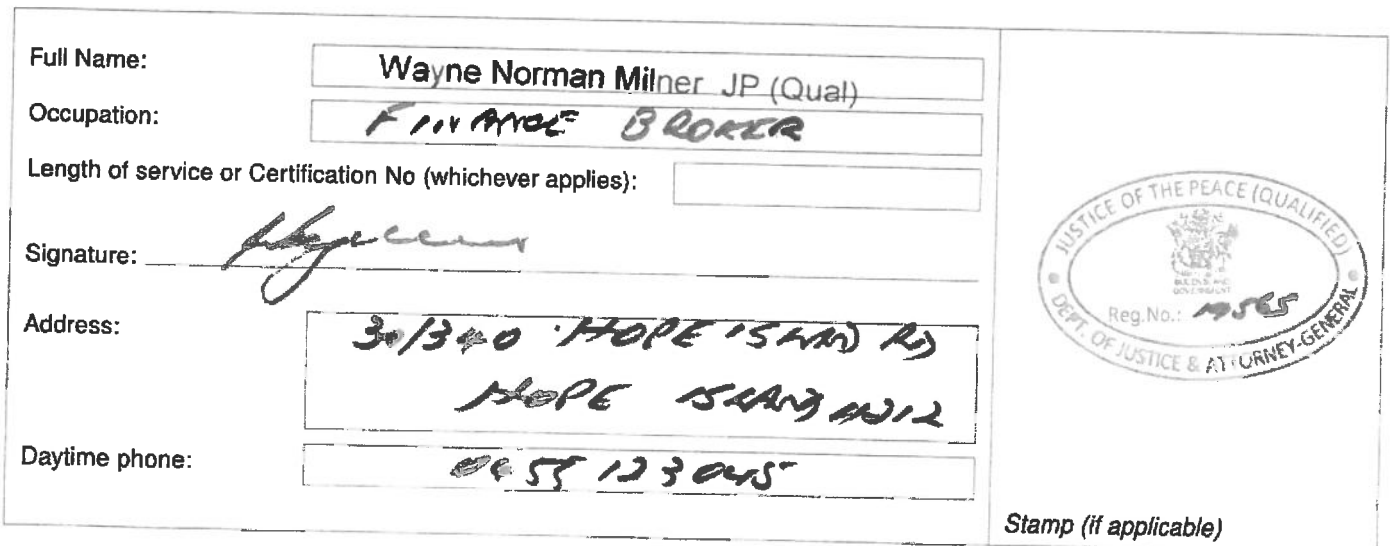 Full Name: Wayne Norman Milner JP (Qual)
Occupation: FINANCE BROKER
Length of service or Certification No (whichever applies):
Signature:
Address: 30/340 HOPE ISLAND RD
HOPE ISLAND 4212
Daytime phone: 0455 123 045
JUSTICE OF THE PEACE (QUALIFIED)
QUEENSLAND
GOVERNMENT
Reg.No.: 19565
DEPT. OF JUSTICE & ATTORNEY-GENERAL
Stamp (if applicable)